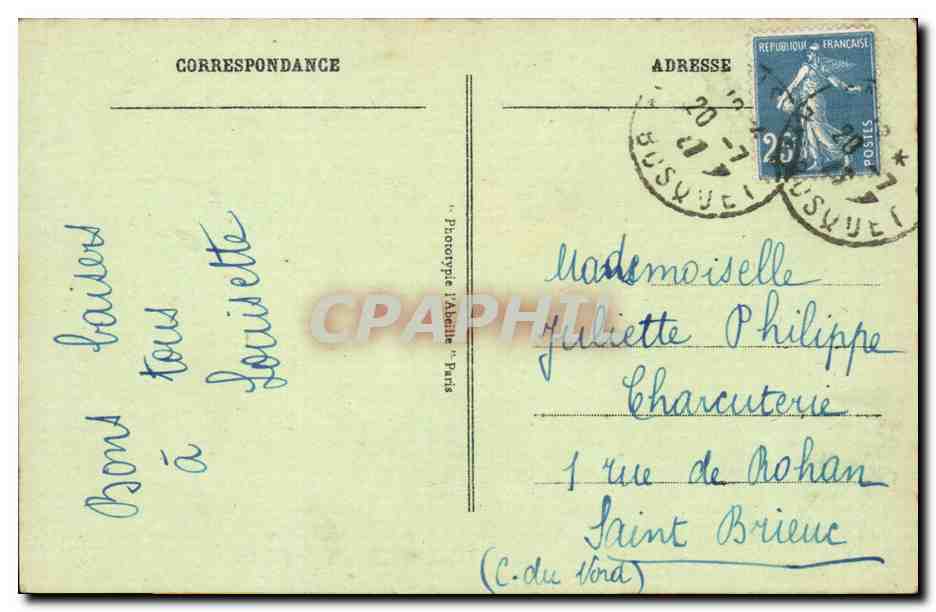 CORRESPONDANCE
Bons baisers
à tous
Louisette
" Phototypie l'Abeille " Paris
ADRESSE
REPUBLIQUE FRANÇAISE
25
POSTES
20 -7
BUSQUET
20 -7
BUSQUET
*
CPAPHIL
Mademoiselle
Juliette Philippe
Charcuterie
1 rue de Rohan
Saint Brieuc
(C. du Nord)